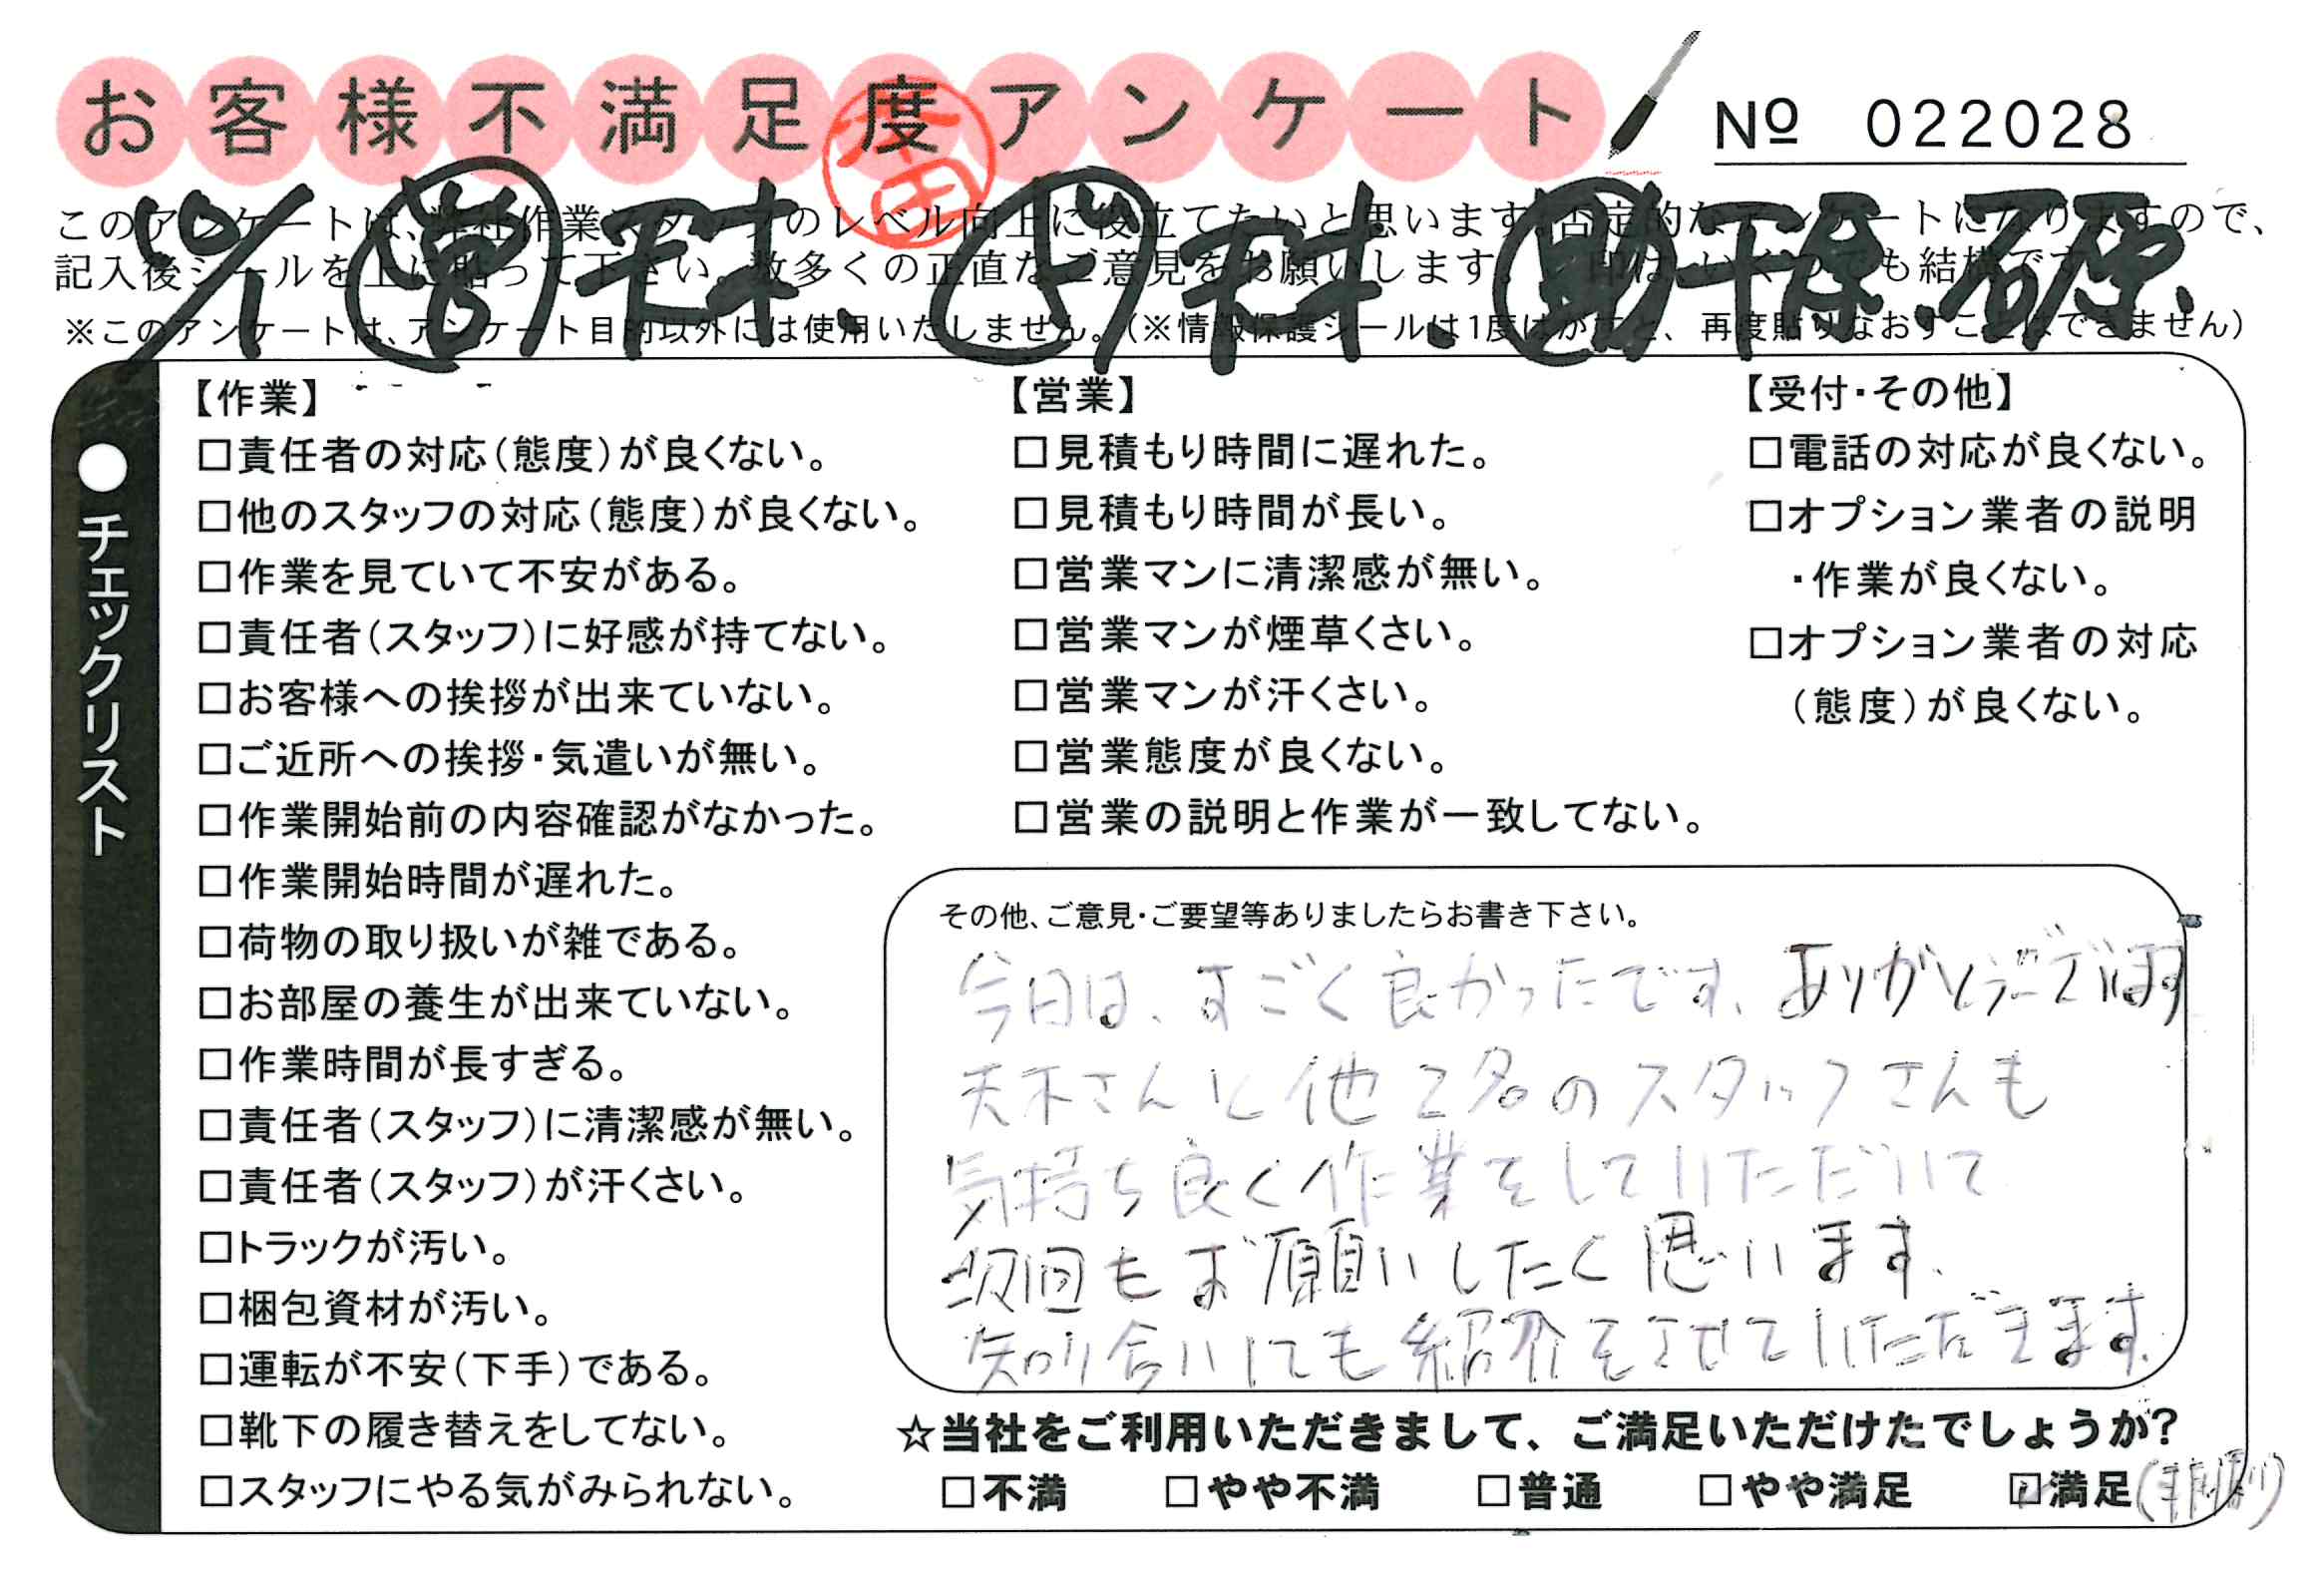 お客様不満足度アンケート
№ 022028
10/1 営 天木、ド 天木、助 干場、石原、
このアンケートは、弊社作業スタッフのレベル向上に役立てたいと思います。否定的なアンケートになりますので、
記入後シールを上に貼って下さい。数多くの正直なご意見をお願いします。 印はいくつでも結構です。
※このアンケートは、アンケート目的以外には使用いたしません。(※情報保護シールは1度はがすと、再度貼りなおすことはできません)
●チェックリスト
【作業】
□責任者の対応(態度)が良くない。
□他のスタッフの対応(態度)が良くない。
□作業を見ていて不安がある。
□責任者(スタッフ)に好感が持てない。
□お客様への挨拶が出来ていない。
□ご近所への挨拶・気遣いが無い。
□作業開始前の内容確認がなかった。
□作業開始時間が遅れた。
□荷物の取り扱いが雑である。
□お部屋の養生が出来ていない。
□作業時間が長すぎる。
□責任者(スタッフ)に清潔感が無い。
□責任者(スタッフ)が汗くさい。
□トラックが汚い。
□梱包資材が汚い。
□運転が不安(下手)である。
□靴下の履き替えをしてない。
□スタッフにやる気がみられない。
【営業】
□見積もり時間に遅れた。
□見積もり時間が長い。
□営業マンに清潔感が無い。
□営業マンが煙草くさい。
□営業マンが汗くさい。
□営業態度が良くない。
□営業の説明と作業が一致してない。
【受付・その他】
□電話の対応が良くない。
□オプション業者の説明
・作業が良くない。
□オプション業者の対応
(態度)が良くない。
その他、ご意見・ご要望等ありましたらお書き下さい。
今日は、すごく良かったです、ありがとうございます
天木さんと他2名のスタッフさんも
気持ち良く作業をしていただいて
次回もお願いしたく思います.
知り合いにても紹介をさせていただきます.
☆当社をご利用いただきまして、ご満足いただけたでしょうか?
□不満 □やや不満 □普通 □やや満足 ☑満足